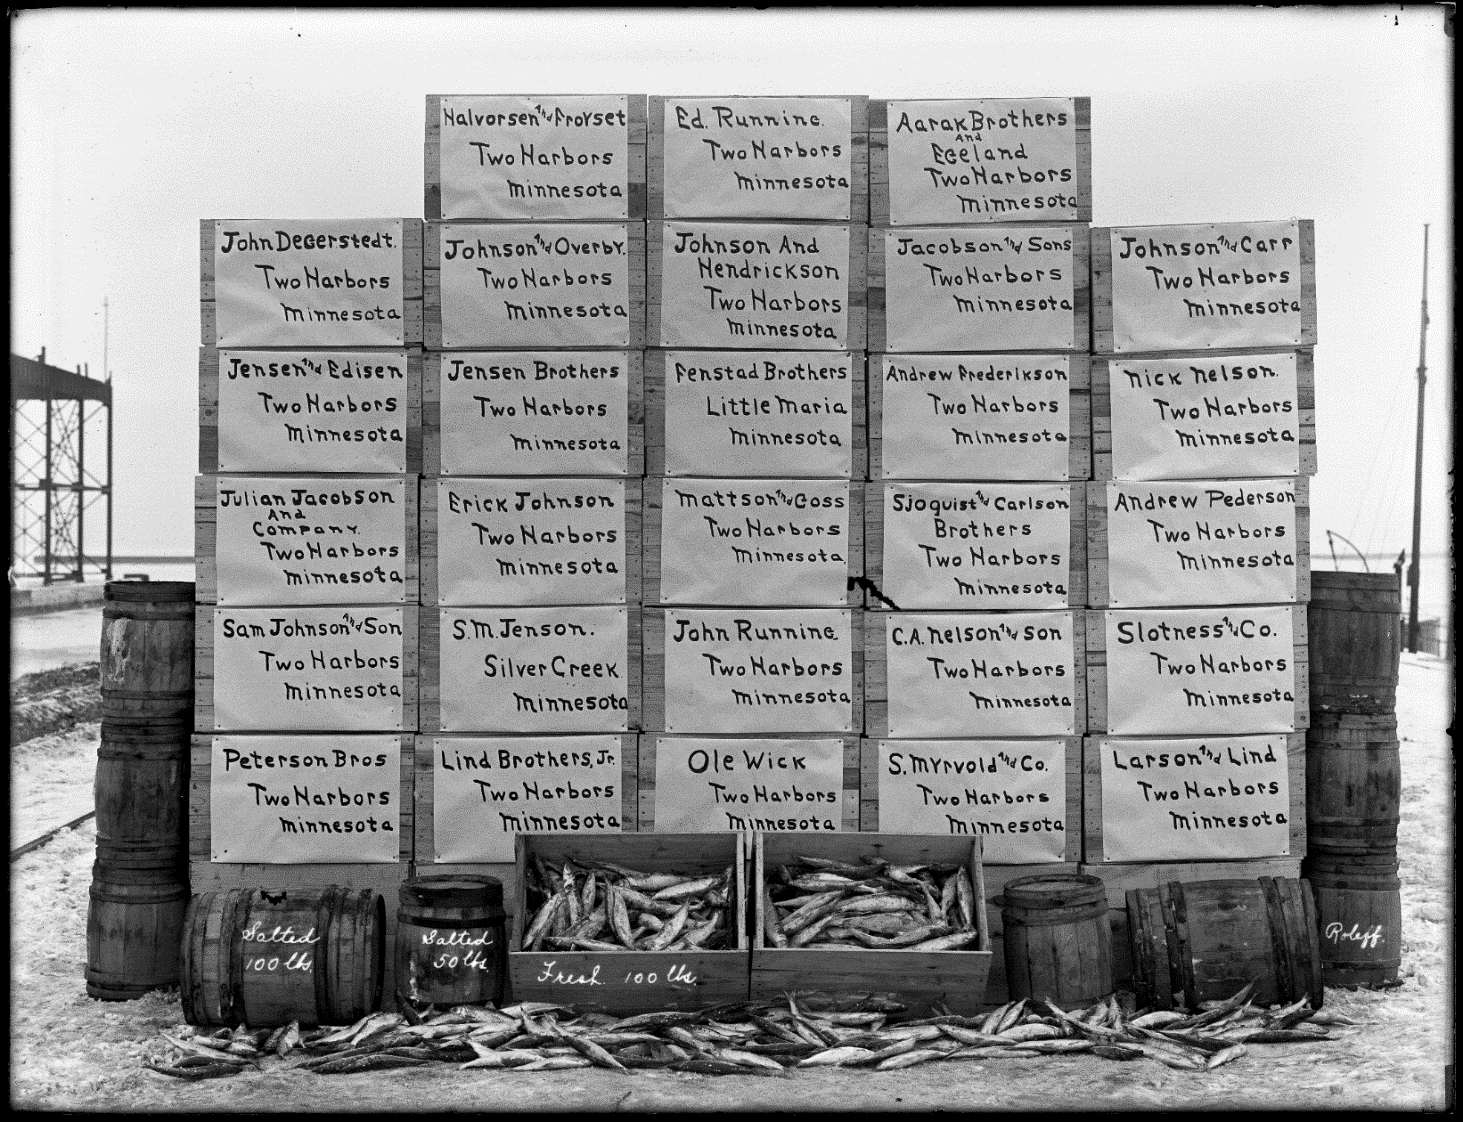 Halvorsen And Froyset
Two Harbors
Minnesota
Ed. Running.
Two Harbors
Minnesota
Aarak Brothers
And
Egeland
Two Harbors
Minnesota
John Degerstedt.
Two Harbors
Minnesota
Johnson And Overby.
Two Harbors
Minnesota
Johnson And
Hendrickson
Two Harbors
Minnesota
Jacobson And Sons
Two Harbors
Minnesota
Johnson And Carr
Two Harbors
Minnesota
Jensen And Edisen
Two Harbors
Minnesota
Jensen Brothers
Two Harbors
Minnesota
Fenstad Brothers
Little Maria
Minnesota
Andrew Frederikson
Two Harbors
Minnesota
Nick Nelson.
Two Harbors
Minnesota
Julian Jacobson
And
Company.
Two Harbors
Minnesota
Erick Johnson
Two Harbors
Minnesota
Mattson And Goss
Two Harbors
Minnesota
Sjoquist And Carlson
Brothers
Two Harbors
Minnesota
Andrew Pederson
Two Harbors
Minnesota
Sam Johnson And Son
Two Harbors
Minnesota
S.M. Jenson.
Silver Creek
Minnesota
John Running.
Two Harbors
Minnesota
C.A. Nelson And Son
Two Harbors
Minnesota
Slotness And Co.
Two Harbors
Minnesota
Peterson Bros
Two Harbors
Minnesota
Lind Brothers, Jr.
Two Harbors
Minnesota
Ole Wick
Two Harbors
Minnesota
S. Myrvold And Co.
Two Harbors
Minnesota
Larson And Lind
Two Harbors
Minnesota
Salted
100 lbs.
Salted
50 lbs.
Fresh. 100 lbs.
Roleff.